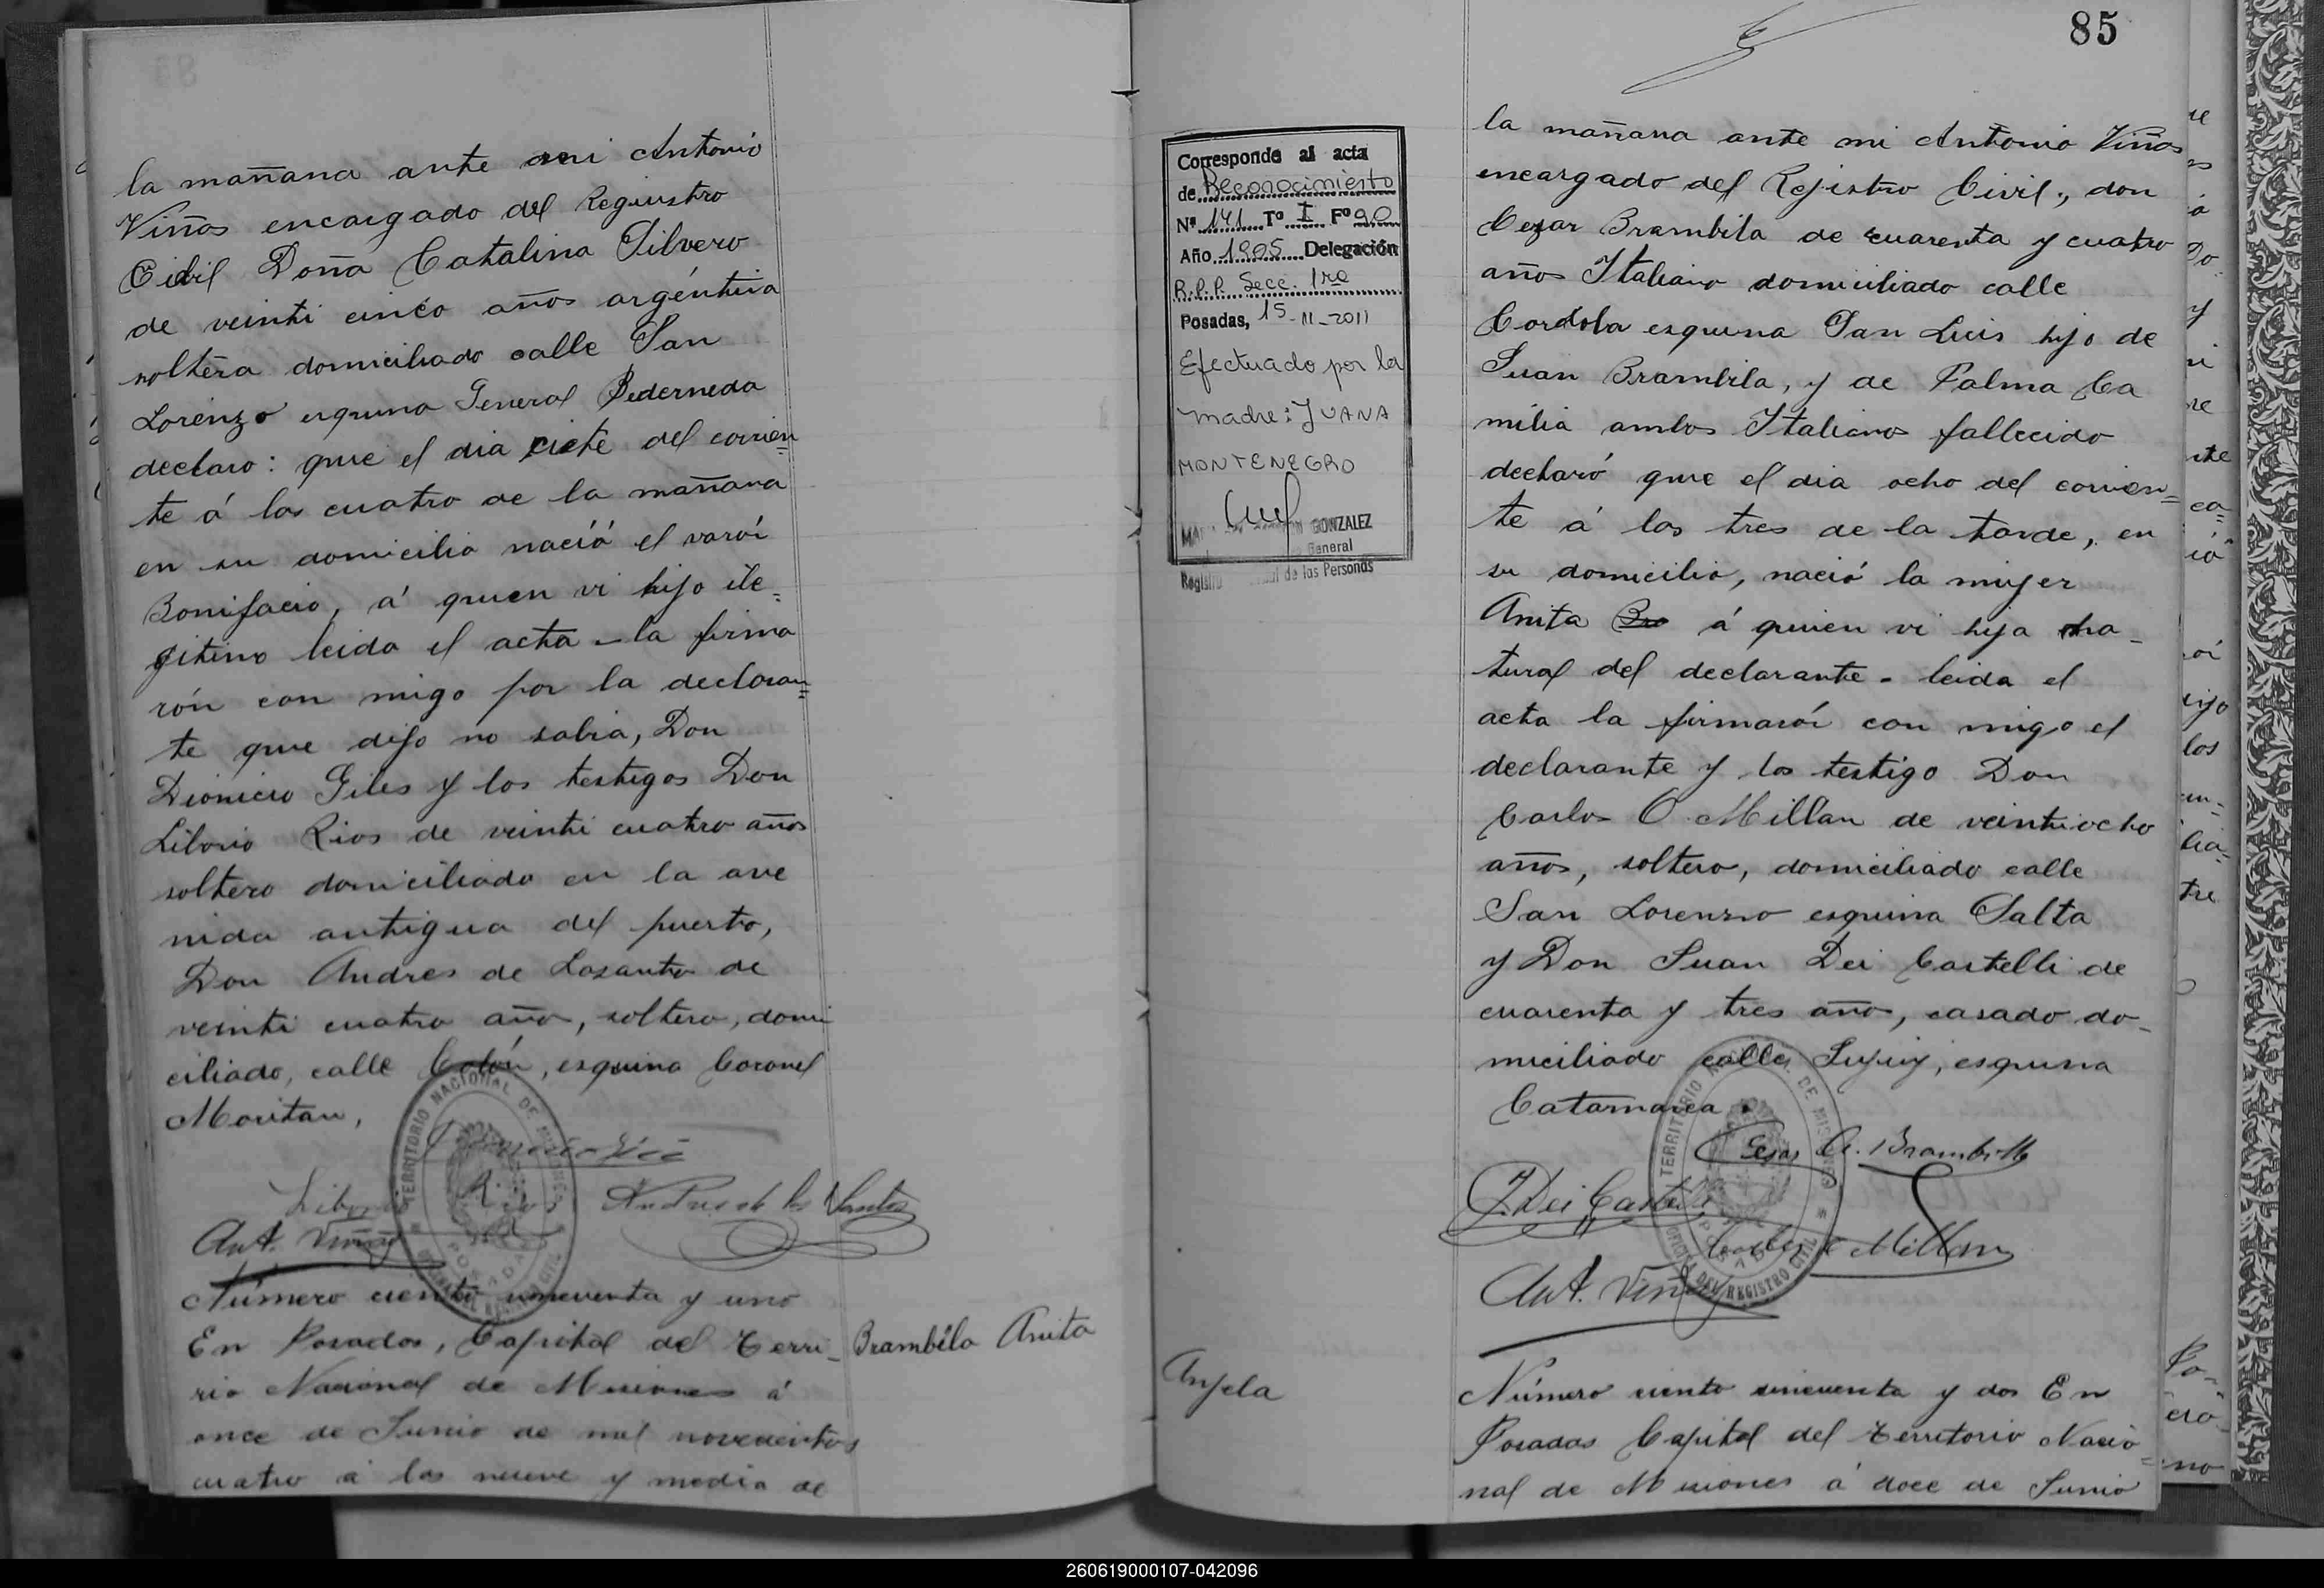 la mañana ante mi Antonio
Viñas encargado del Regiustro
Cibil Doña Catalina Silvero
de veinti cinco años argéntina
soltera domiciliado calle San
Lorenzo esquina General Pederneda
declaro: que el dia ciete del corrien=
te á las cuatro de la mañana
en su domicilio nació el varón
Bonifacio, á quien vi hijo ile=
gitino leida el acta - la firma
rón con migo por la declaran=
te que dijo no sabia, Don
Dionicio Giles y los testigos Don
Liborio Rios de veinti cuatro años
soltero domiciliado en la ave
nida antigua del puerto,
Don Andres de Losantos de
veinti cuatro año, soltero, domi
ciliado, calle Colón, esquina Coronel
Moritan,
TERRITORIO NACIONAL DE MISIONES
POSADAS
Liborio Rios Andres de los Santos
Ant. Viñas
Número ciento cincuenta y uno
En Posadas, Capital del Terri-
rio Nacional de Misiones á
once de Junio de mil novecientos
cuatro á las nueve y media de
Brambila Anita
85
Corresponde al acta
de Reconocimiento
Nº 141 Tº I Fº 90
Año 1905 Delegación
R.P.P. Secc. 1ra
Posadas, 15-11-2011
Efectuado por la
madre: JUANA
MONTENEGRO
GONZALEZ
General
de las Personas
la mañana ante mi Antonio Viñas
encargado del Rejistro Civil, don
Cezar Brambila de cuarenta y cuatro
años Italiano domiciliado calle
Cordoba esquina San Luis hijo de
Juan Brambila, y de Palma Ca
milia ambos Italianos fallecido
declaró que el dia ocho del corrien=
te á las tres de la tarde, en
su domicilio, nació la mujer
Anita Bra á quien vi hija na-
tural del declarante - leida el
acta la firmarón con migo el
declarante y los testigo Don
Carlos O. Millan de veintiocho
años, soltero, domiciliado calle
San Lorenzo esquina Salta
y Don Juan Dei Castelli de
cuarenta y tres año, casado do-
miciliado calle Jujuy, esquina
Catamarca.
Cesar A. Brambilla
J. Dei Castelli
Carlos O Millan
Ant. Viñas
TERRITORIO NACIONAL DE MISIONES
OFICINA DEL REGISTRO CIVIL
POSADAS
Anjela
Número ciento cincuenta y dos En
Posadas Capital del Territorio Nacio=
nal de Misiones á doce de Junio
260619000107-042096